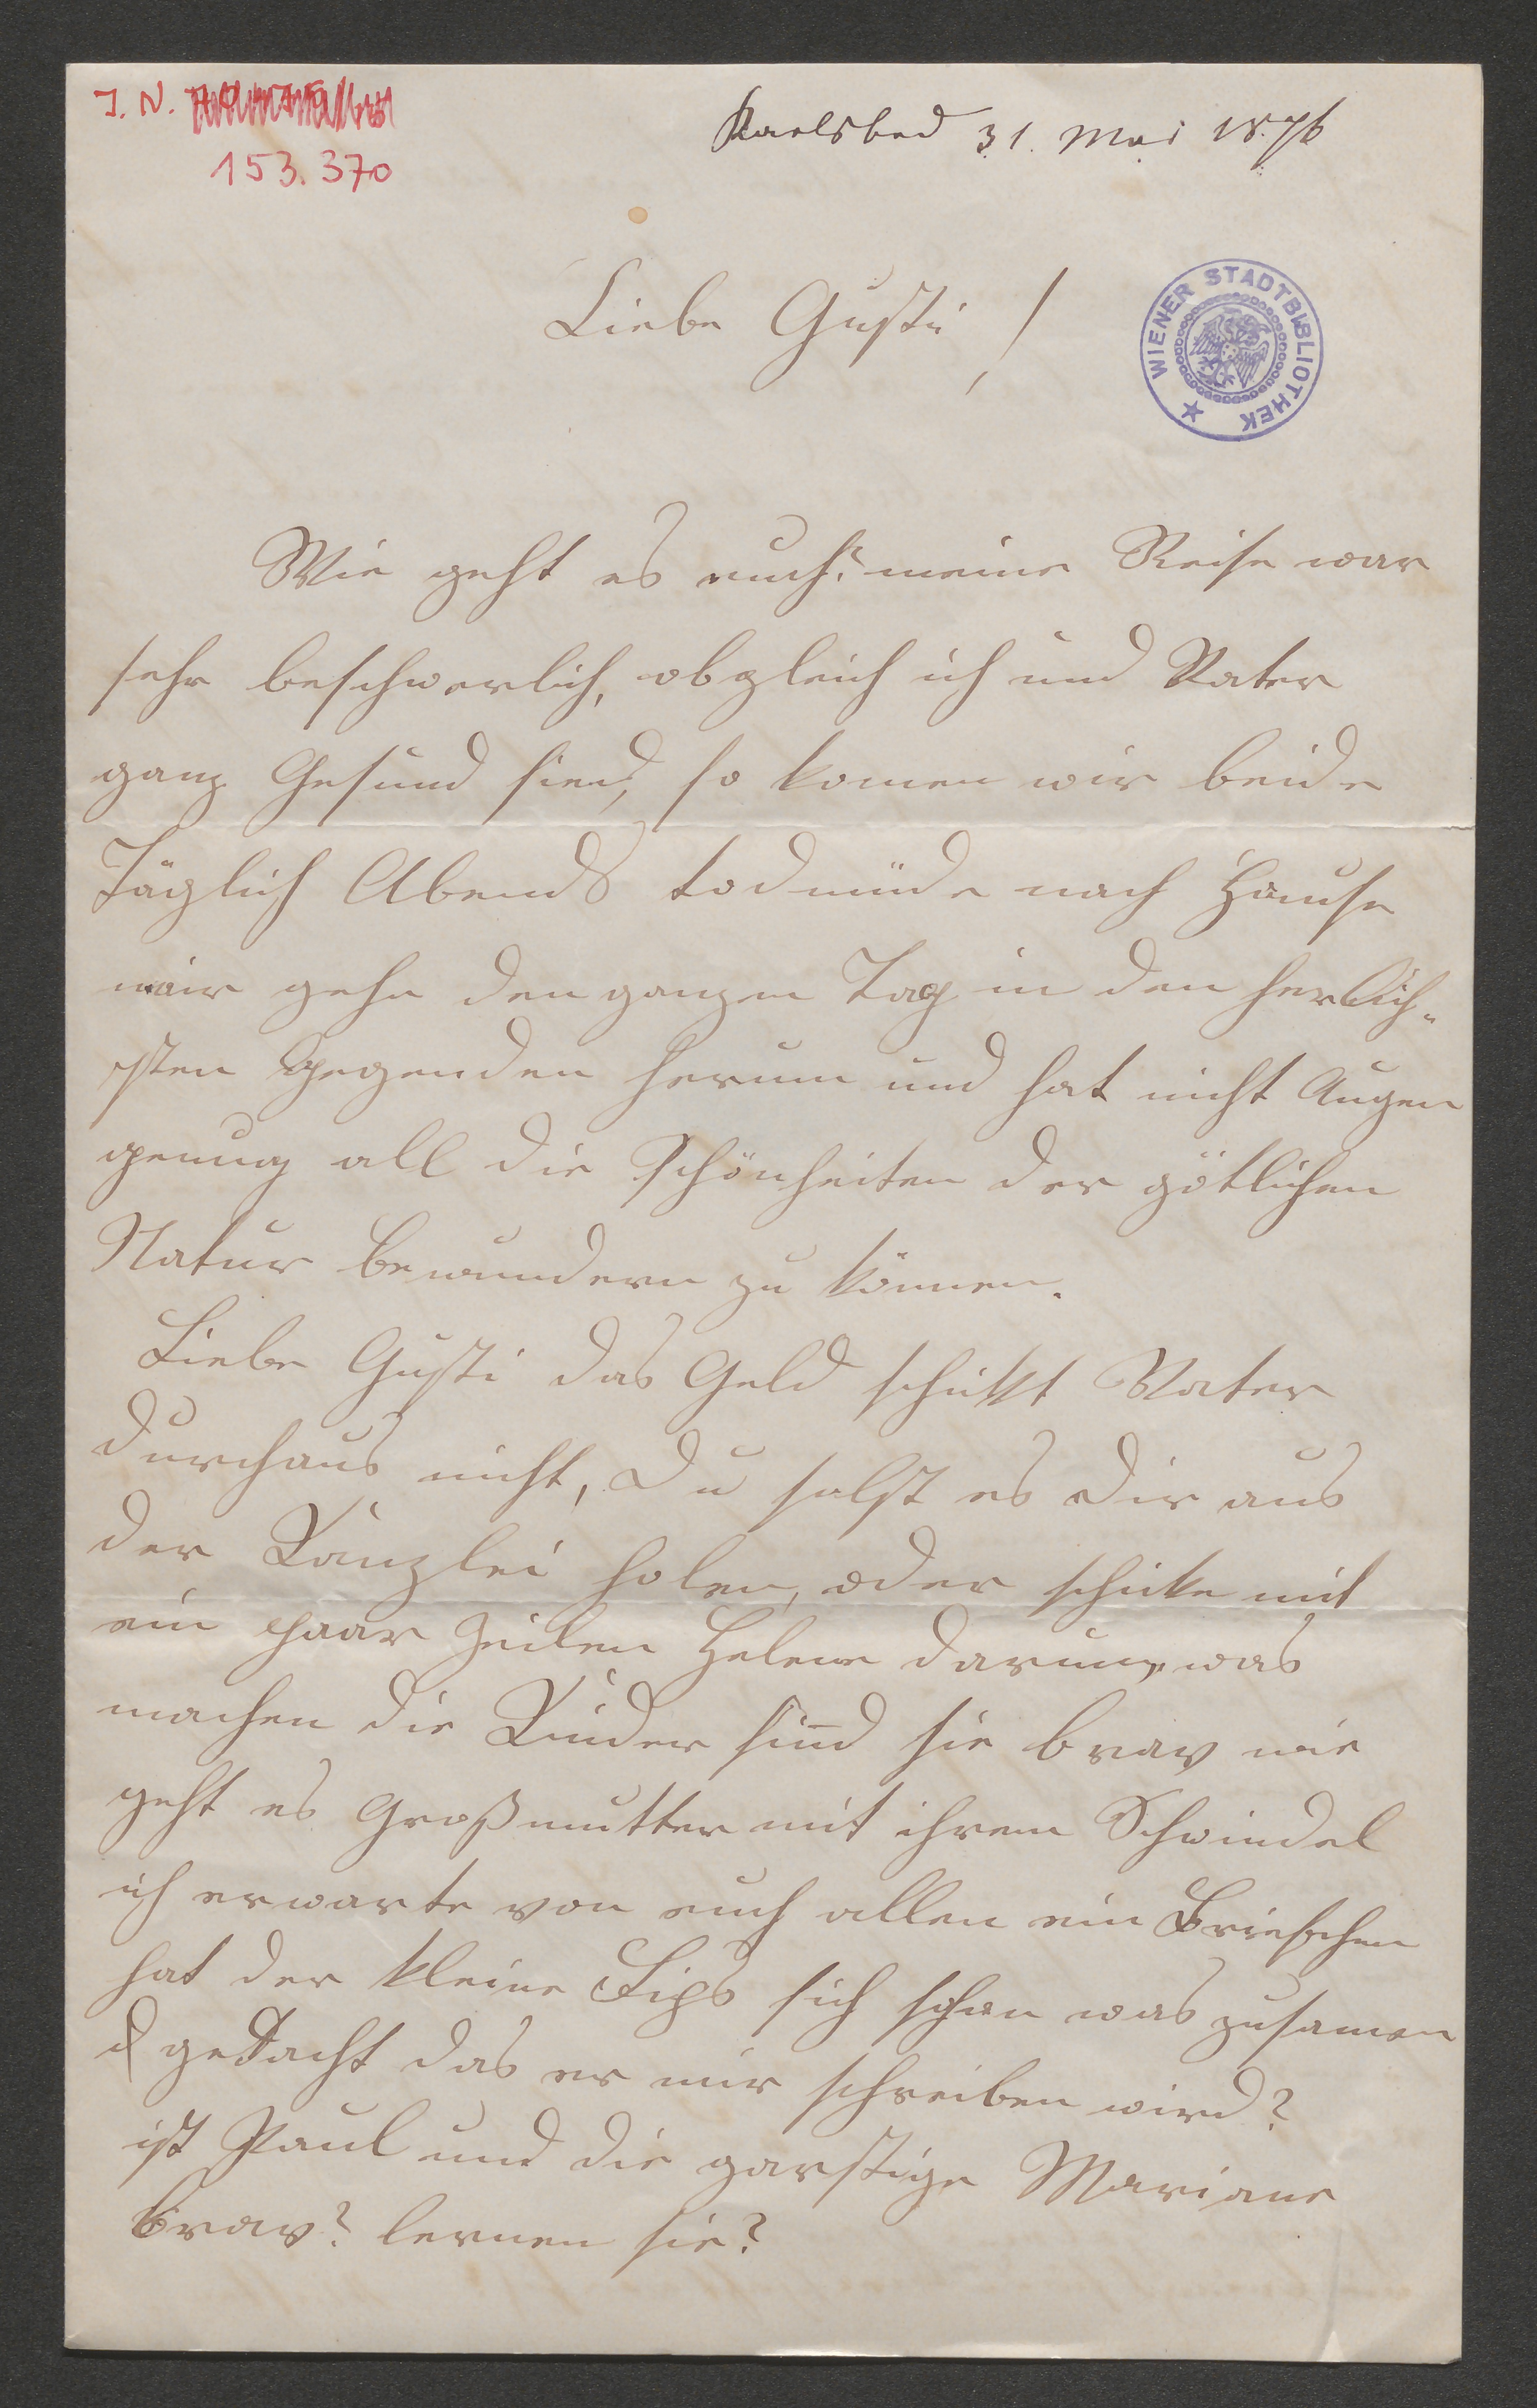 J. N.
153.370
Karlsbad 31. Mai 1876
WIENER STADTBIBLIOTHEK
Liebe Gusti!
Wie geht es euch? meine Reise war
sehr beschwerlich, obgleich ich und Vater
ganz Gesund sind, so komen wir beide
Täglich Abends todmüde nach Hause
wir gehe den ganzen Tag in den herlich-
sten Gegenden herum und hat nicht Augen
genug all die Schönheiten der götlichen
Natur bewundern zu können.
Liebe Gusti das Geld schikt Vater
durchaus nicht, Du solst es dir aus
der Kanzlei holen, oder schike mit
ein paar Zeilen Helene darum, was
machen die Kinder sind sie brav wie
geht es Großmutter mit ihrem Schwindel
ich erwarte von euch allen ein Briefchen
hat der kleine Lips sich schon was zusamen
gedacht das er mir schreiben wird?
ist Paul und die garstige Mariane
brav? lernen sie?